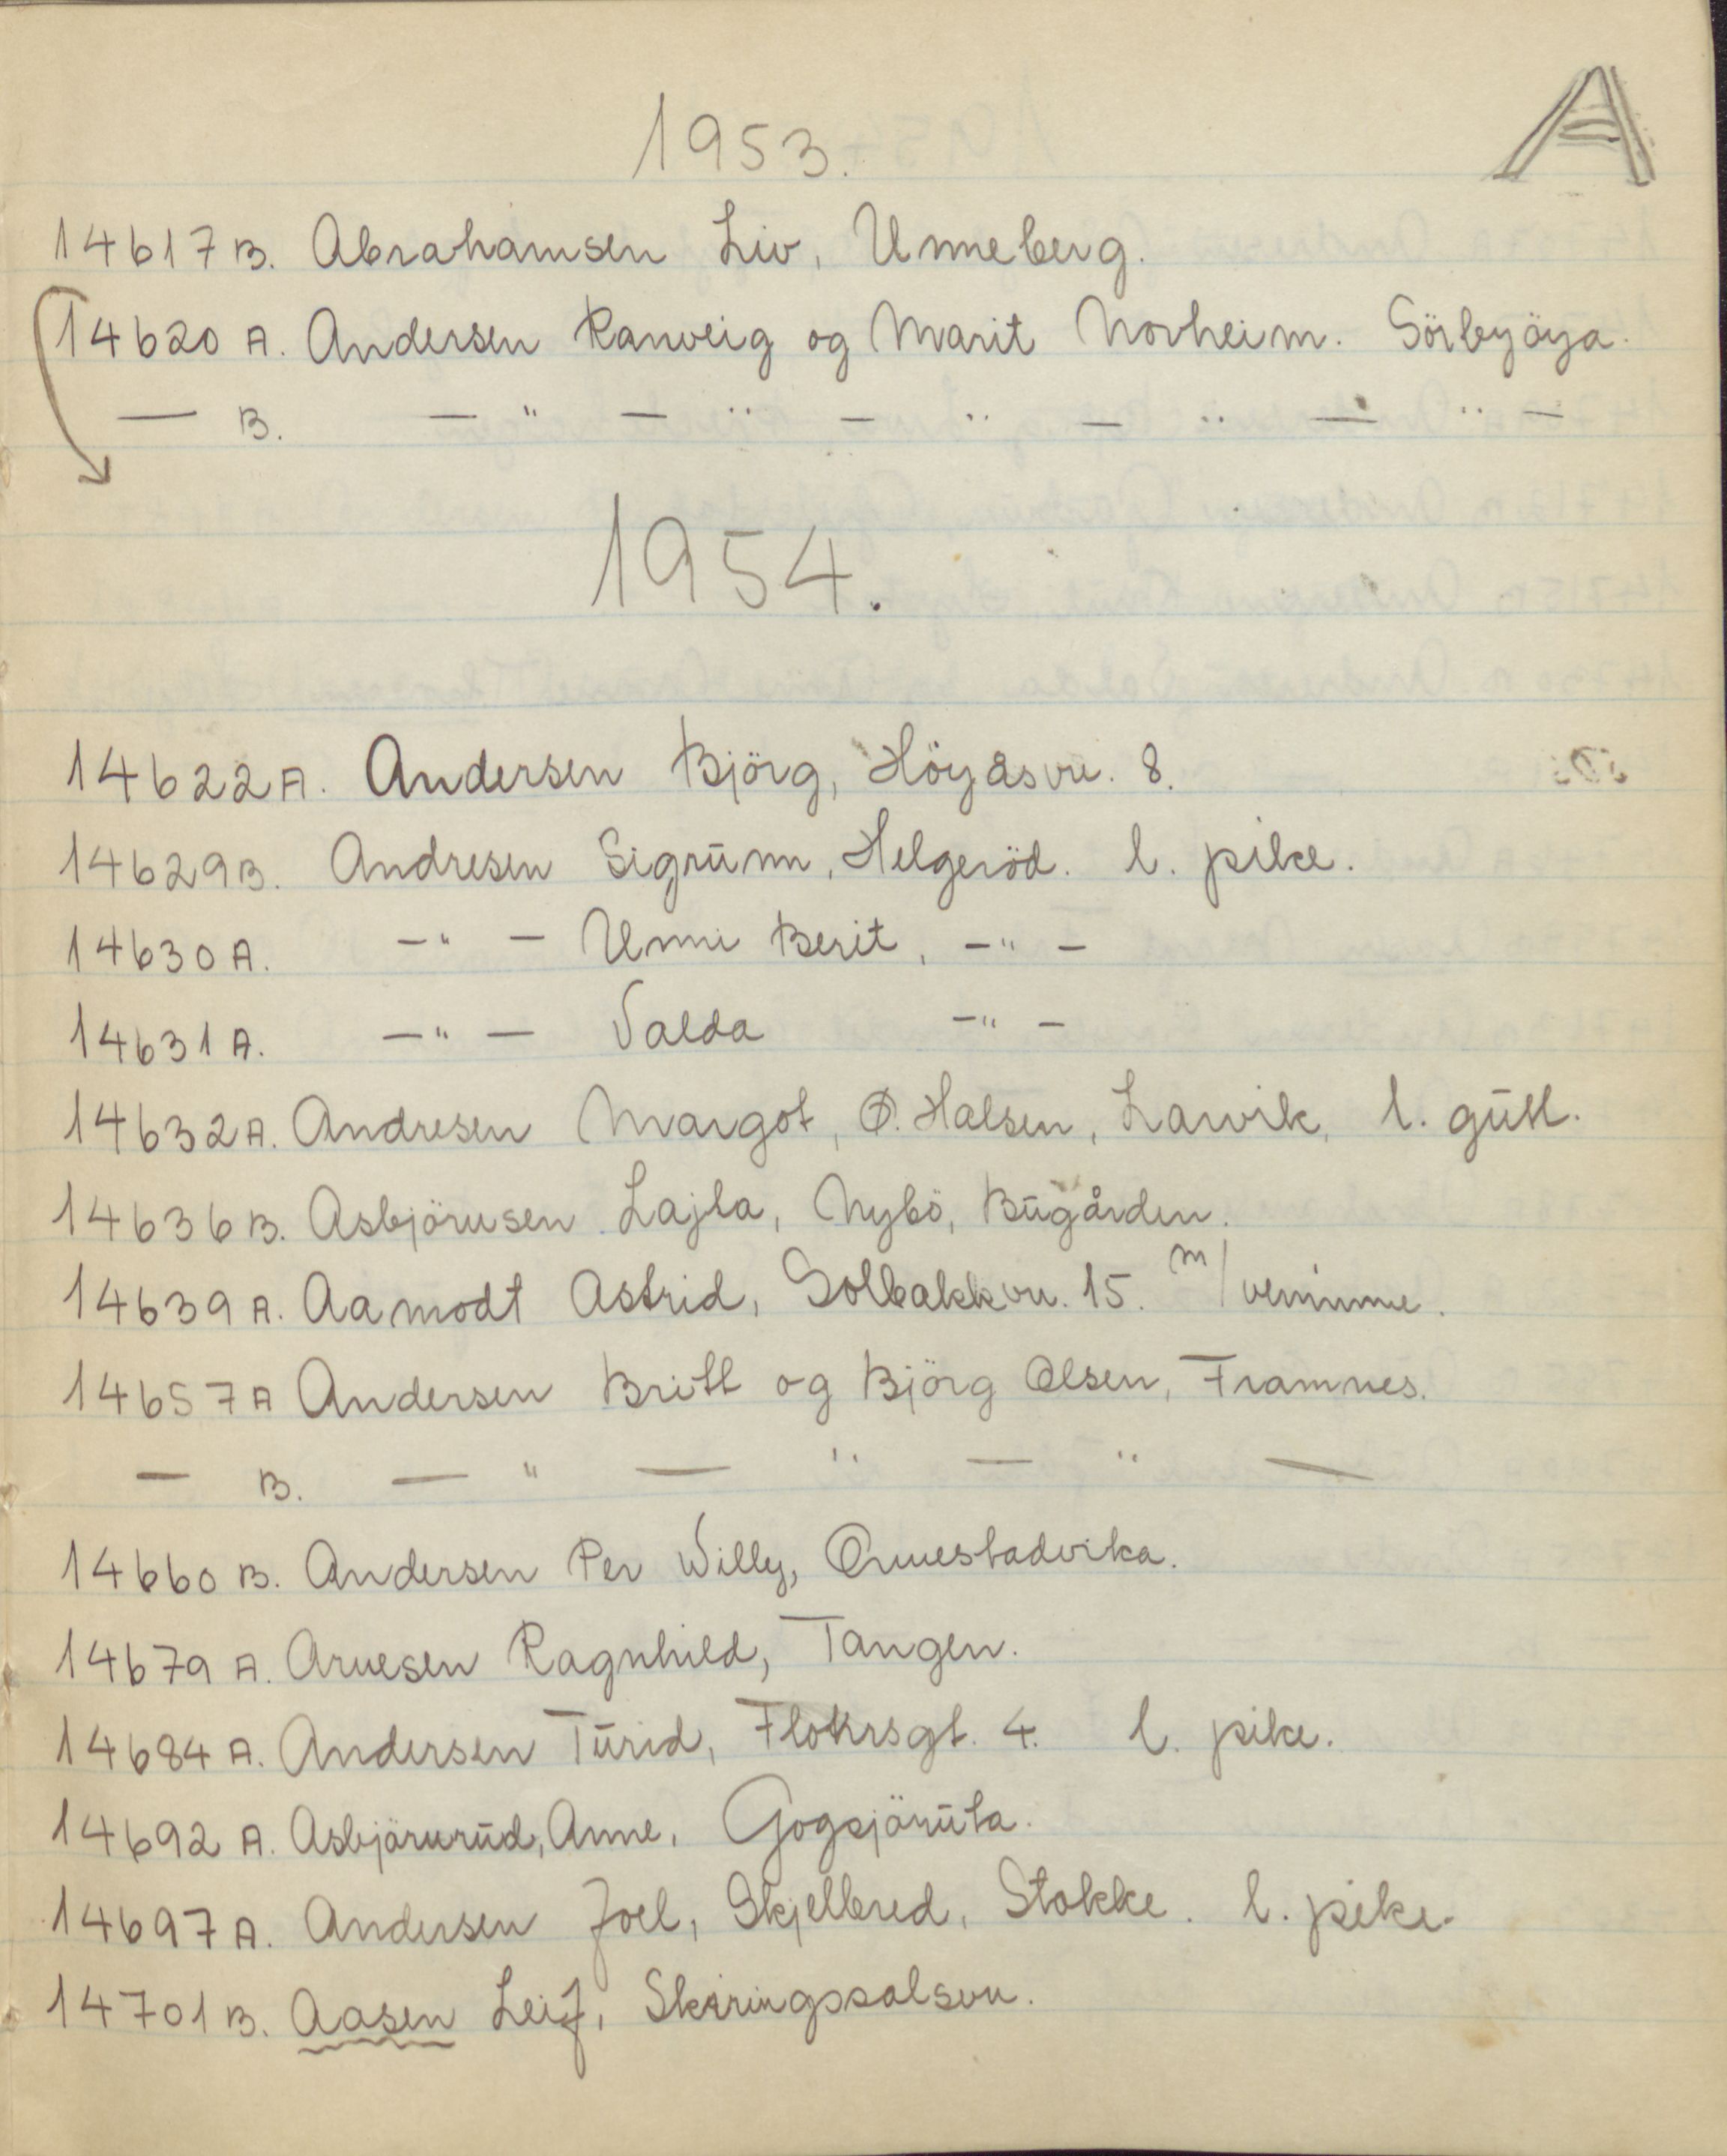 A
1953.
14617 B. Abrahamsen Liv, Unneberg.
14620 A. Andersen Ranveig og Marit Norheim. Sörbyöya.
— B. — " — " — " — " — " —
1954.
14622 A. Andersen Björg, Höyåsvn. 8.
14629 B. Andresen Sigrunn, Helgeröd. l. pike.
14630 A. — " — Unni Berit, — " —
14631 A. — " — Valda — " —
14632 A. Andresen Margot, Ø. Halsen, Larvik, l. gutt.
14636 B. Asbjörnsen Lajla, Nybö, Bugården.
14639 A. Aamodt Astrid, Solbakkvn. 15. m/venninne.
14657 A Andersen Britt og Björg Olsen, Framnes.
— B. — " — " — " —
14660 B. Andersen Per Willy, Ormestadvika.
14679 A. Arnesen Ragnhild, Tangen.
14684 A. Andersen Turid, Flokrsgt. 4. l. pike.
14692 A. Asbjörnrud, Anne, Gogsjöruta.
14697 A. Andersen Joel, Skjellbred, Stokke. l. pike.
14701 B. Aasen Leif, Skiringssalsvn.